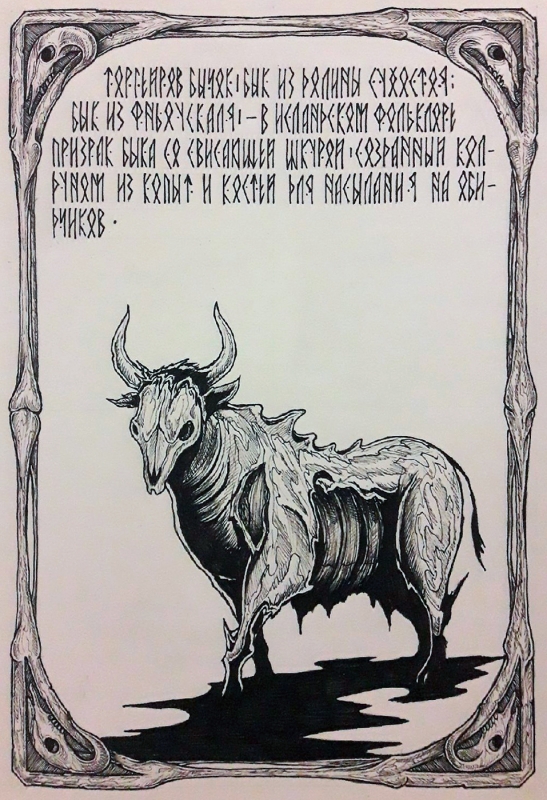 ТОРГЕИРОВ БЫЧОК, БЫК ИЗ ДОЛИНЫ СУХОСТОЯ,
БЫК ИЗ ФНЬОУСКАДЯ, – В ИСЛАНДСКОМ ФОЛЬКЛОРЕ
ПРИЗРАК БЫКА СО СВИСАЮЩЕЙ ШКУРОЙ, СОЗДАННЫЙ КОЛ-
ДУНОМ ИЗ КОПЫТ И КОСТЕЙ ДЛЯ НАСЫЛАНИЯ НА ОБИ-
ДЧИКОВ .